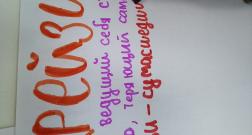 РЕЙЗИ
ведущий себя с
о, теряющий сам
и - сумасшедши